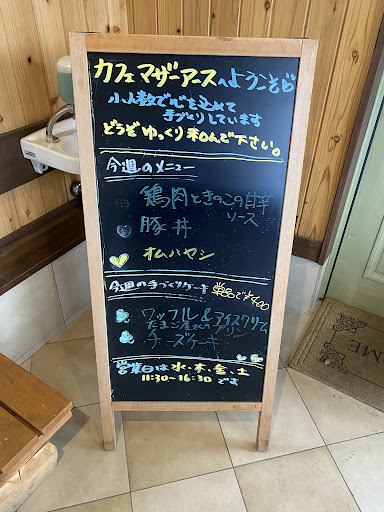 カフェマザーアースへようこそ
小人数で心を込めて
手づくりしています
どうぞゆっくり和んで下さい。
今週のメニュー
鶏肉ときのこの甘辛
ソース
豚丼
オムハヤシ
今週の手づくりケーキ 単品で¥400
ワッフル&アイスクリーム
たまご屋さんのプリン
チーズケーキ
営業日は水・木・金、土
11:30～16:30です
OME